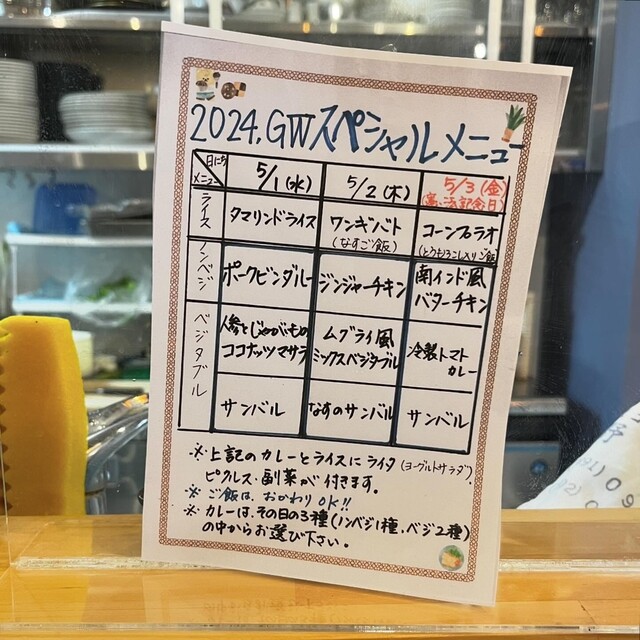 2024.GWスペシャルメニュー
日にち
メニュー
5/1(水)
5/2(木)
5/3(金)
(憲法記念日)
ライス
タマリンドライス
ワンギバト
(なすご飯)
コーンプラオ
(とうもろこし入りご飯)
ノンベジ
ポークビンダルー
ジンジャーチキン
南インド風
バターチキン
ベジタブル
人参とじゃがいもの
ココナッツマサラ
ムグライ風
ミックスベジタブル
冷製トマト
カレー
サンバル
なすのサンバル
サンバル
※上記のカレーとライスにライタ(ヨーグルトサラダ)、
ピクルス・副菜が付きます。
※ご飯は、おかわりOK!!
※カレーは、その日の3種(ノンベジ1種、ベジ2種)
の中からお選び下さい。
予